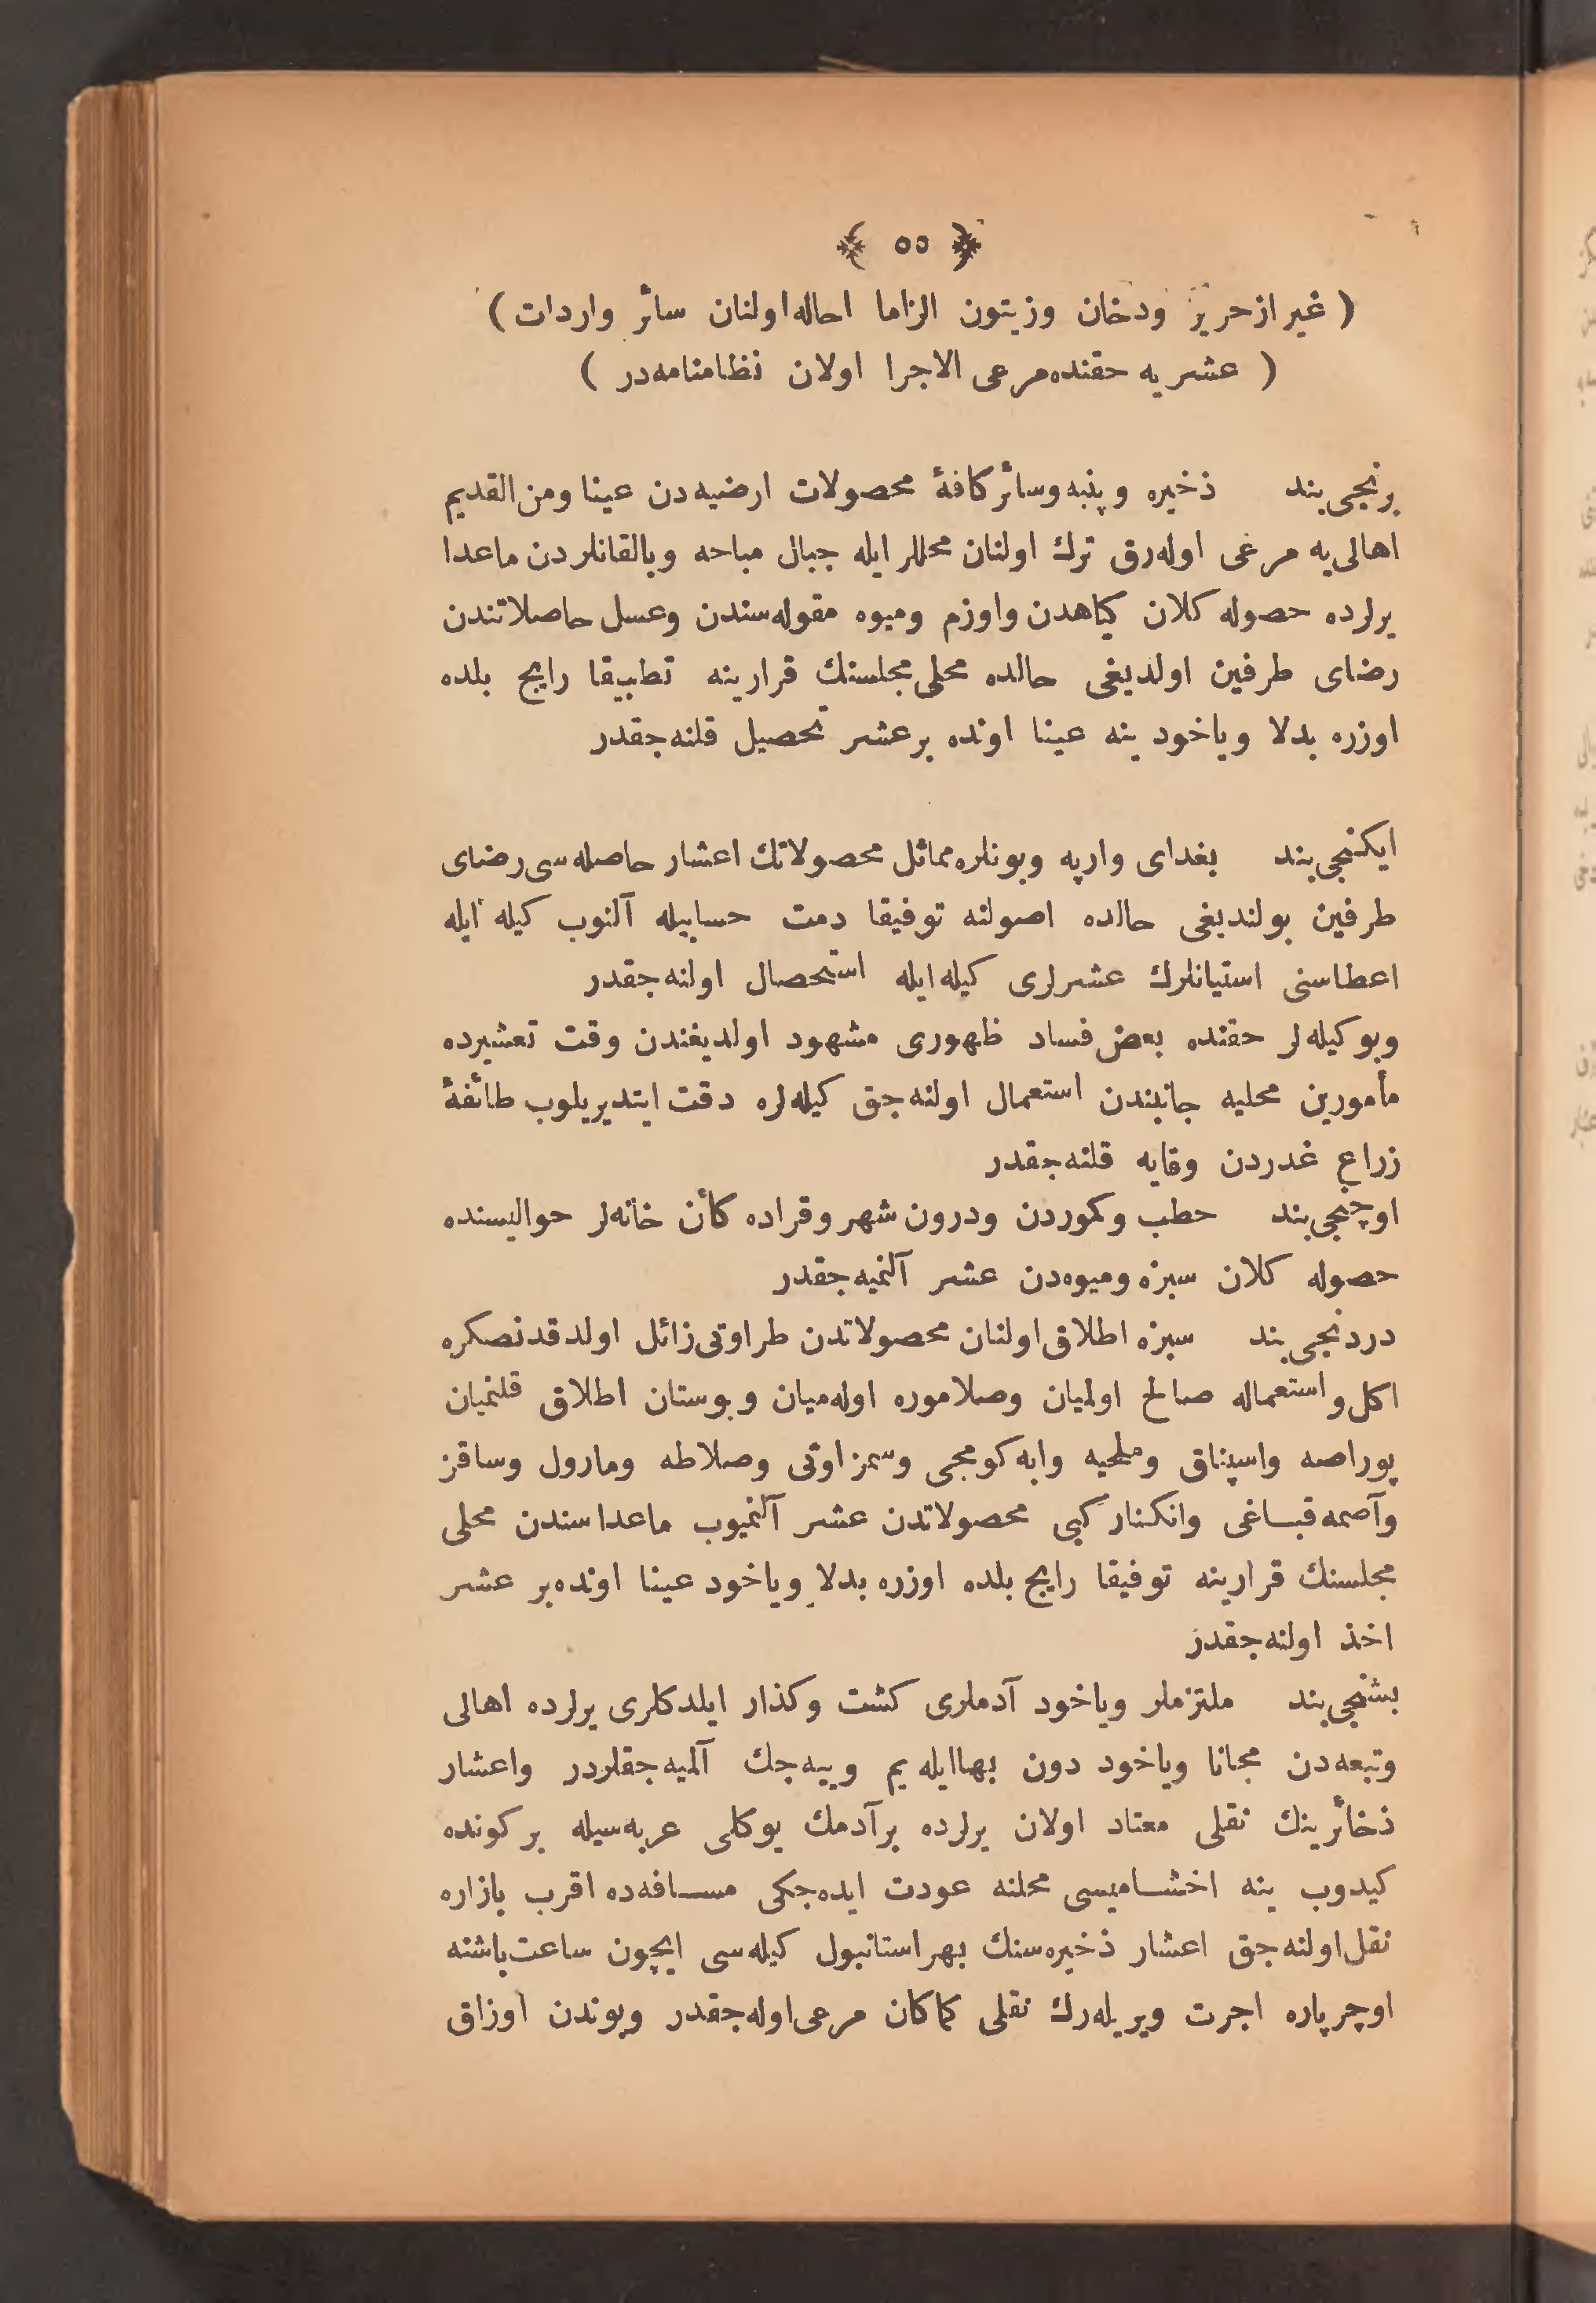 ﴿ ٥٥ ﴾
( غير از حرير ودخان وزيتون الزاما احاله اولنان سائر واردات )
( عشريه حقنده مرعى الاجرا اولان نظامنامه‌در )
برنجى بند ذخيره وپنبه وسائر كافهٔ محصولات ارضيه‌دن عينا ومن القديم
اهالى‌يه مرعى اوله‌رق ترك اولنان محللر ايله جبال مباحه وبالقانلردن ماعدا
يرلرده حصوله كلان كياهدن واوزم وميوه مقوله‌سندن وعسل حاصلاتندن
رضاى طرفين اولديغى حالده محلى مجلسنك قرارينه تطبيقا رايج بلده
اوزره بدلا وياخود ينه عينا اونده بر عشر تحصيل قلنه‌جقدر
ايكنجى بند بغداى وارپه وبونلره مماثل محصولاتك اعشار حاصله‌سى رضاى
طرفين بولنديغى حالده اصولنه توفيقا دمت حسابيله آلنوب كيله ايله
اعطاسنى استيانلرك عشرلرى كيله ايله استحصال اولنه‌جقدر
وبو كيله‌لر حقنده بعض فساد ظهورى مشهود اولديغندن وقت تعشيرده
مأمورين محليه جانبندن استعمال اولنه‌جق كيله‌لره دقت ايتديريلوب طائفهٔ
زراع غدردن وقايه قلنه‌جقدر
اوچنجى بند حطب وكموردن ودرون شهر وقراده كأن خانه‌لر حواليسنده
حصوله كلان سبزه وميوه‌دن عشر آلنميه‌جقدر
دردنجى بند سبزه اطلاق اولنان محصولاتدن طراوتى زائل اولدقدنصكره
اكل واستعماله صالح اولميان وصلاموره اوله‌ميان وبوستان اطلاق قلنميان
پوراصه واسپناق وملحيه وابه كومجى وسمز اوتى وصلاطه ومارول وساقز
وآصمه قباغى وانكنار كبى محصولاتدن عشر آلنميوب ماعداسندن محلى
مجلسنك قرارينه توفيقا رايج بلده اوزره بدلا وياخود عينا اونده بر عشر
اخذ اولنه‌جقدر
بشنجى بند ملتزملر وياخود آدملرى كشت وكذار ايلدكلرى يرلرده اهالى
وتبعه‌دن مجانا وياخود دون بها ايله يم وييه‌جك آلميه‌جقلردر واعشار
ذخائرينك نقلى معتاد اولان يرلرده بر آدمك يوكلى عربه‌سيله بر كونده
كيدوب ينه اخشاميسى محلنه عودت ايده‌جكى مسافه‌ده اقرب بازاره
نقل اولنه‌جق اعشار ذخيره‌سنك بهر استانبول كيله‌سى ايچون ساعت باشنه
اوچر پاره اجرت ويريله‌رك نقلى كماكان مرعى اوله‌جقدر وبوندن اوزاق